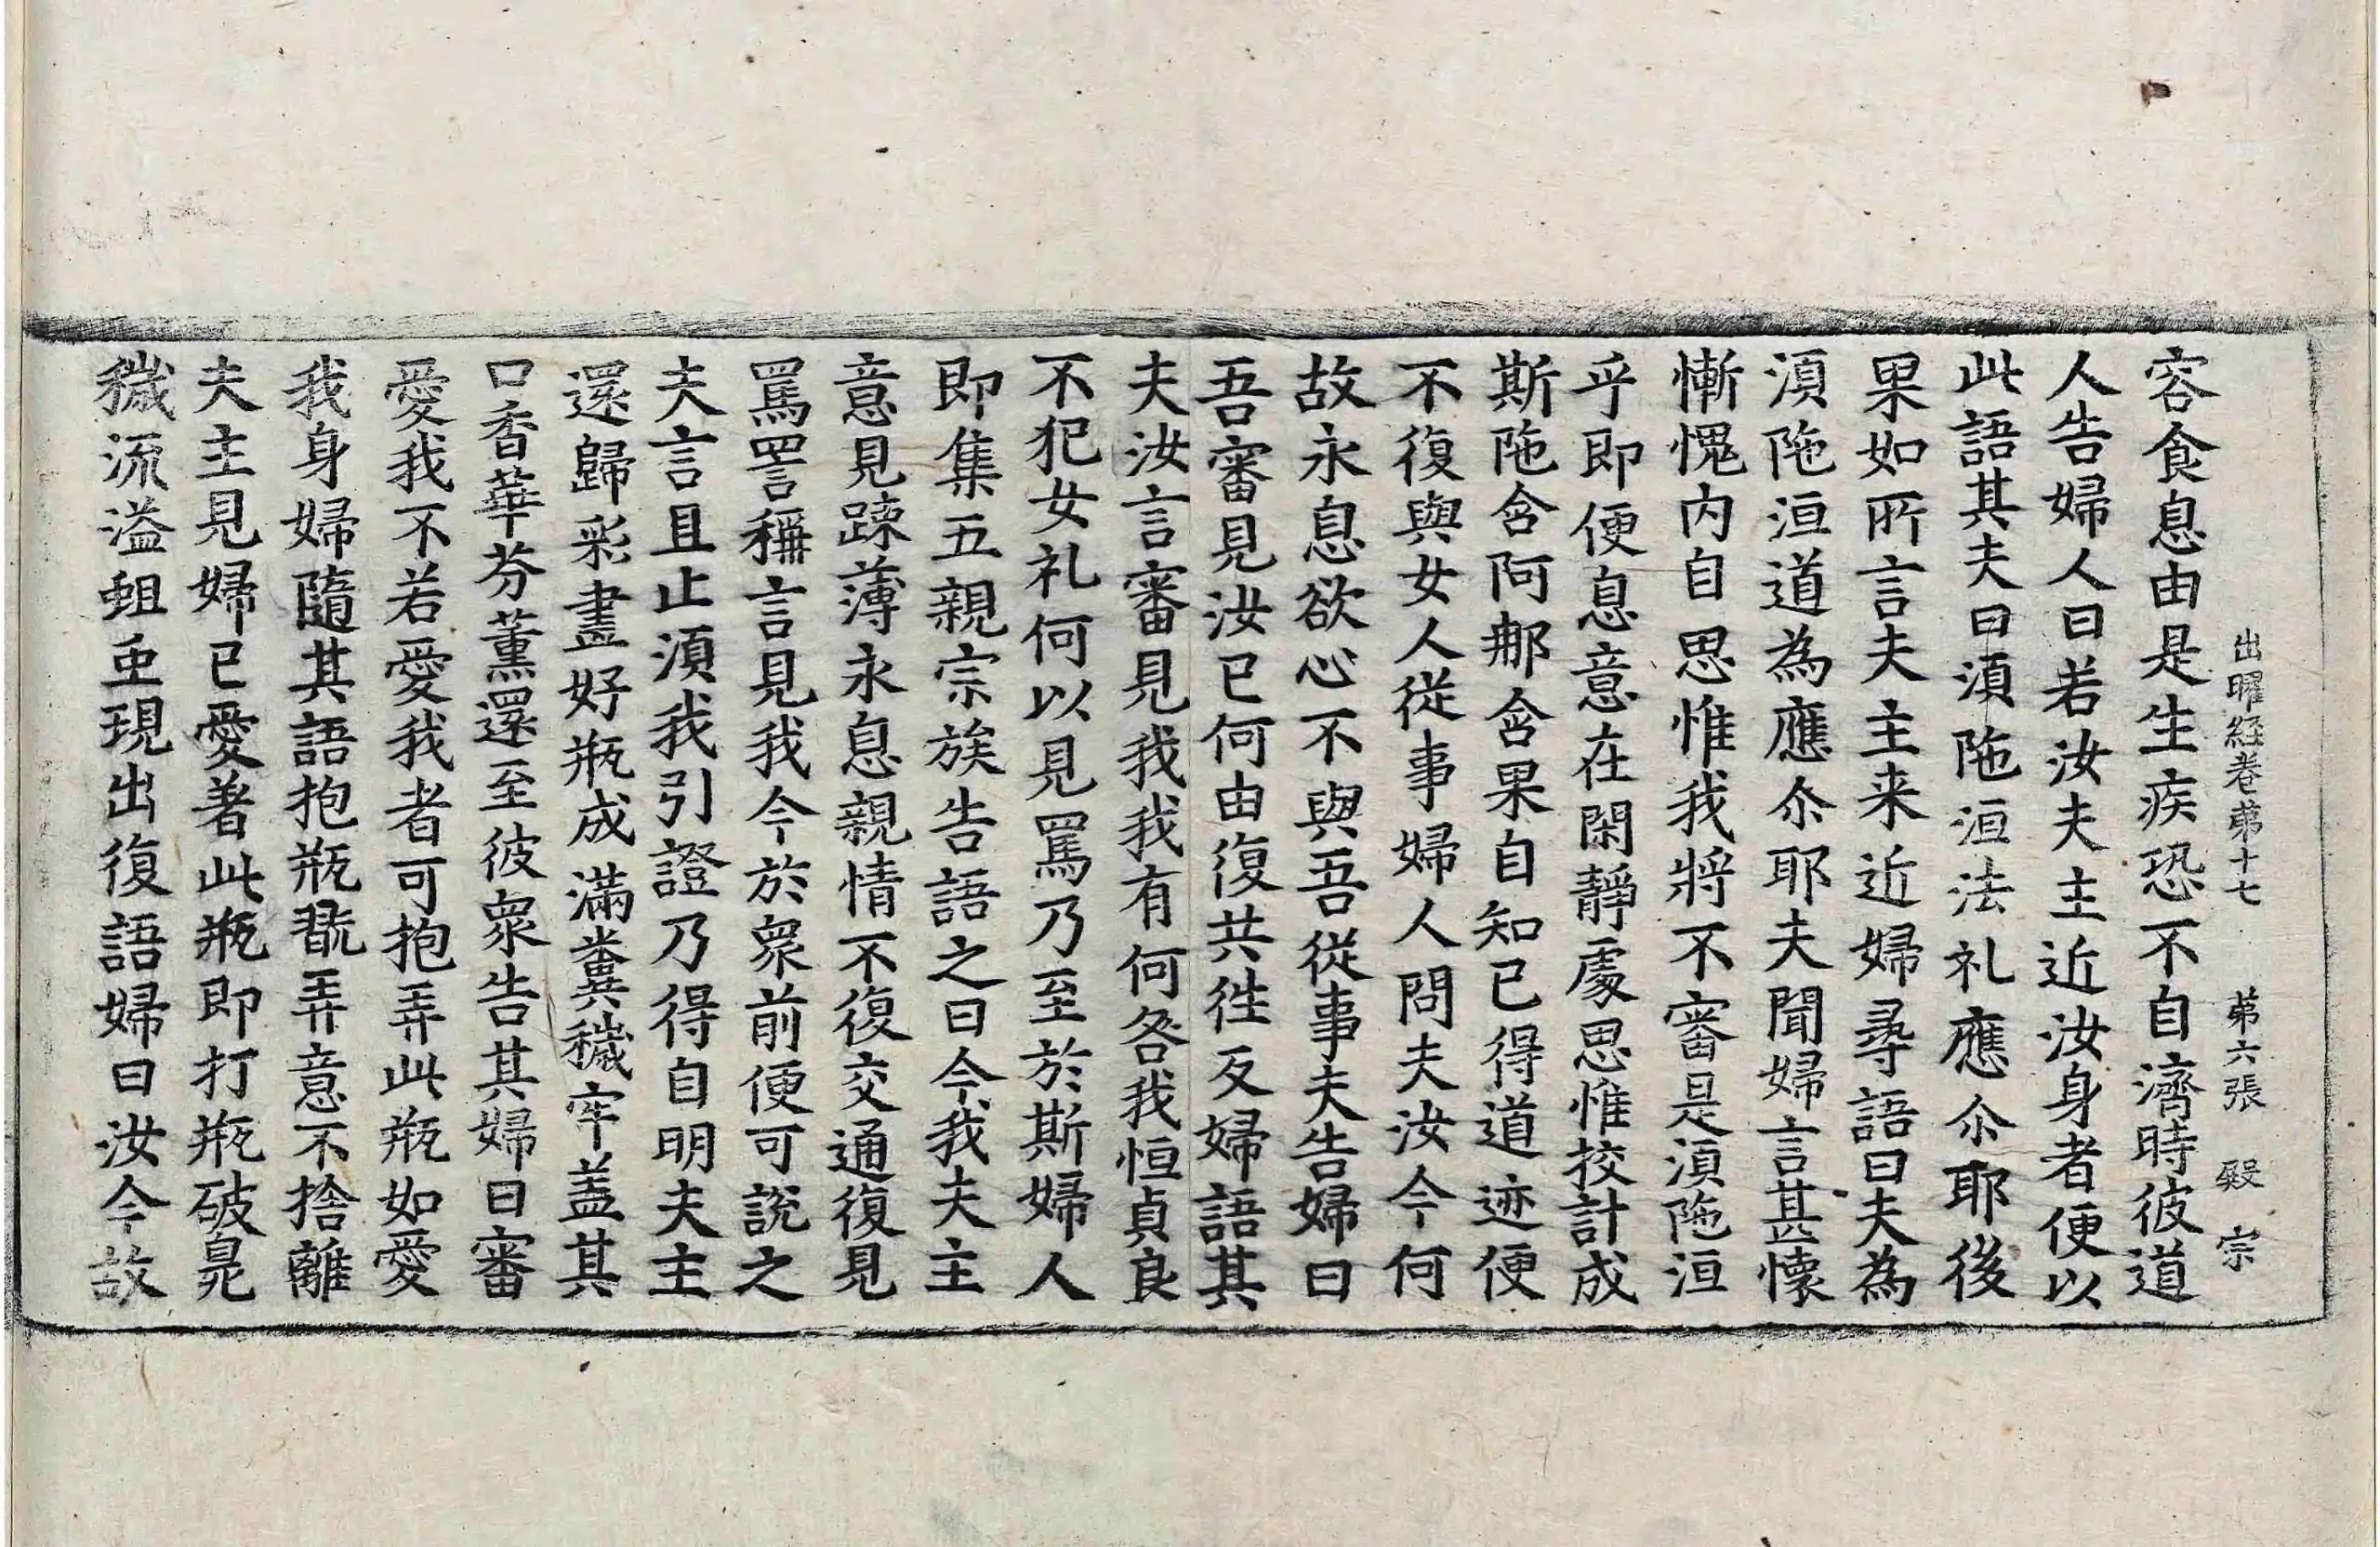 出曜経卷苐十七　苐六張　殷　宗
容食息由是生疾恐不自濟時彼道
人告婦人曰若汝夫主近汝身者便以
此語其夫曰湏陁洹法礼應尒耶後
果如所言夫主来近婦尋語曰夫為
湏陁洹道為應尒耶夫聞婦言甚懷
慚愧内自思惟我將不審是湏陁洹
乎即便息意在閑靜處思惟挍計成
斯陁含阿那含果自知已得道迹便
不復與女人從事婦人問夫汝今何
故永息欲心不與吾從事夫告婦曰
吾審見汝已何由復共徃反婦語其
夫汝言審見我我有何咎我恒貞良
不犯女礼何以見罵乃至於斯婦人
即集五親宗族告語之曰今我夫主
意見踈薄永息親情不復交通復見
罵詈稱言見我今於衆前便可說之
夫言且止湏我引證乃得自明夫主
還歸彩畫好瓶成滿糞穢牢盖其
口香華芬薰還至彼衆告其婦曰審
愛我不若愛我者可抱弄此瓶如愛
我身婦隨其語抱瓶翫弄意不捨離
夫主見婦已愛著此瓶即打瓶破臰
穢流溢蛆虫現出復語婦曰汝今故